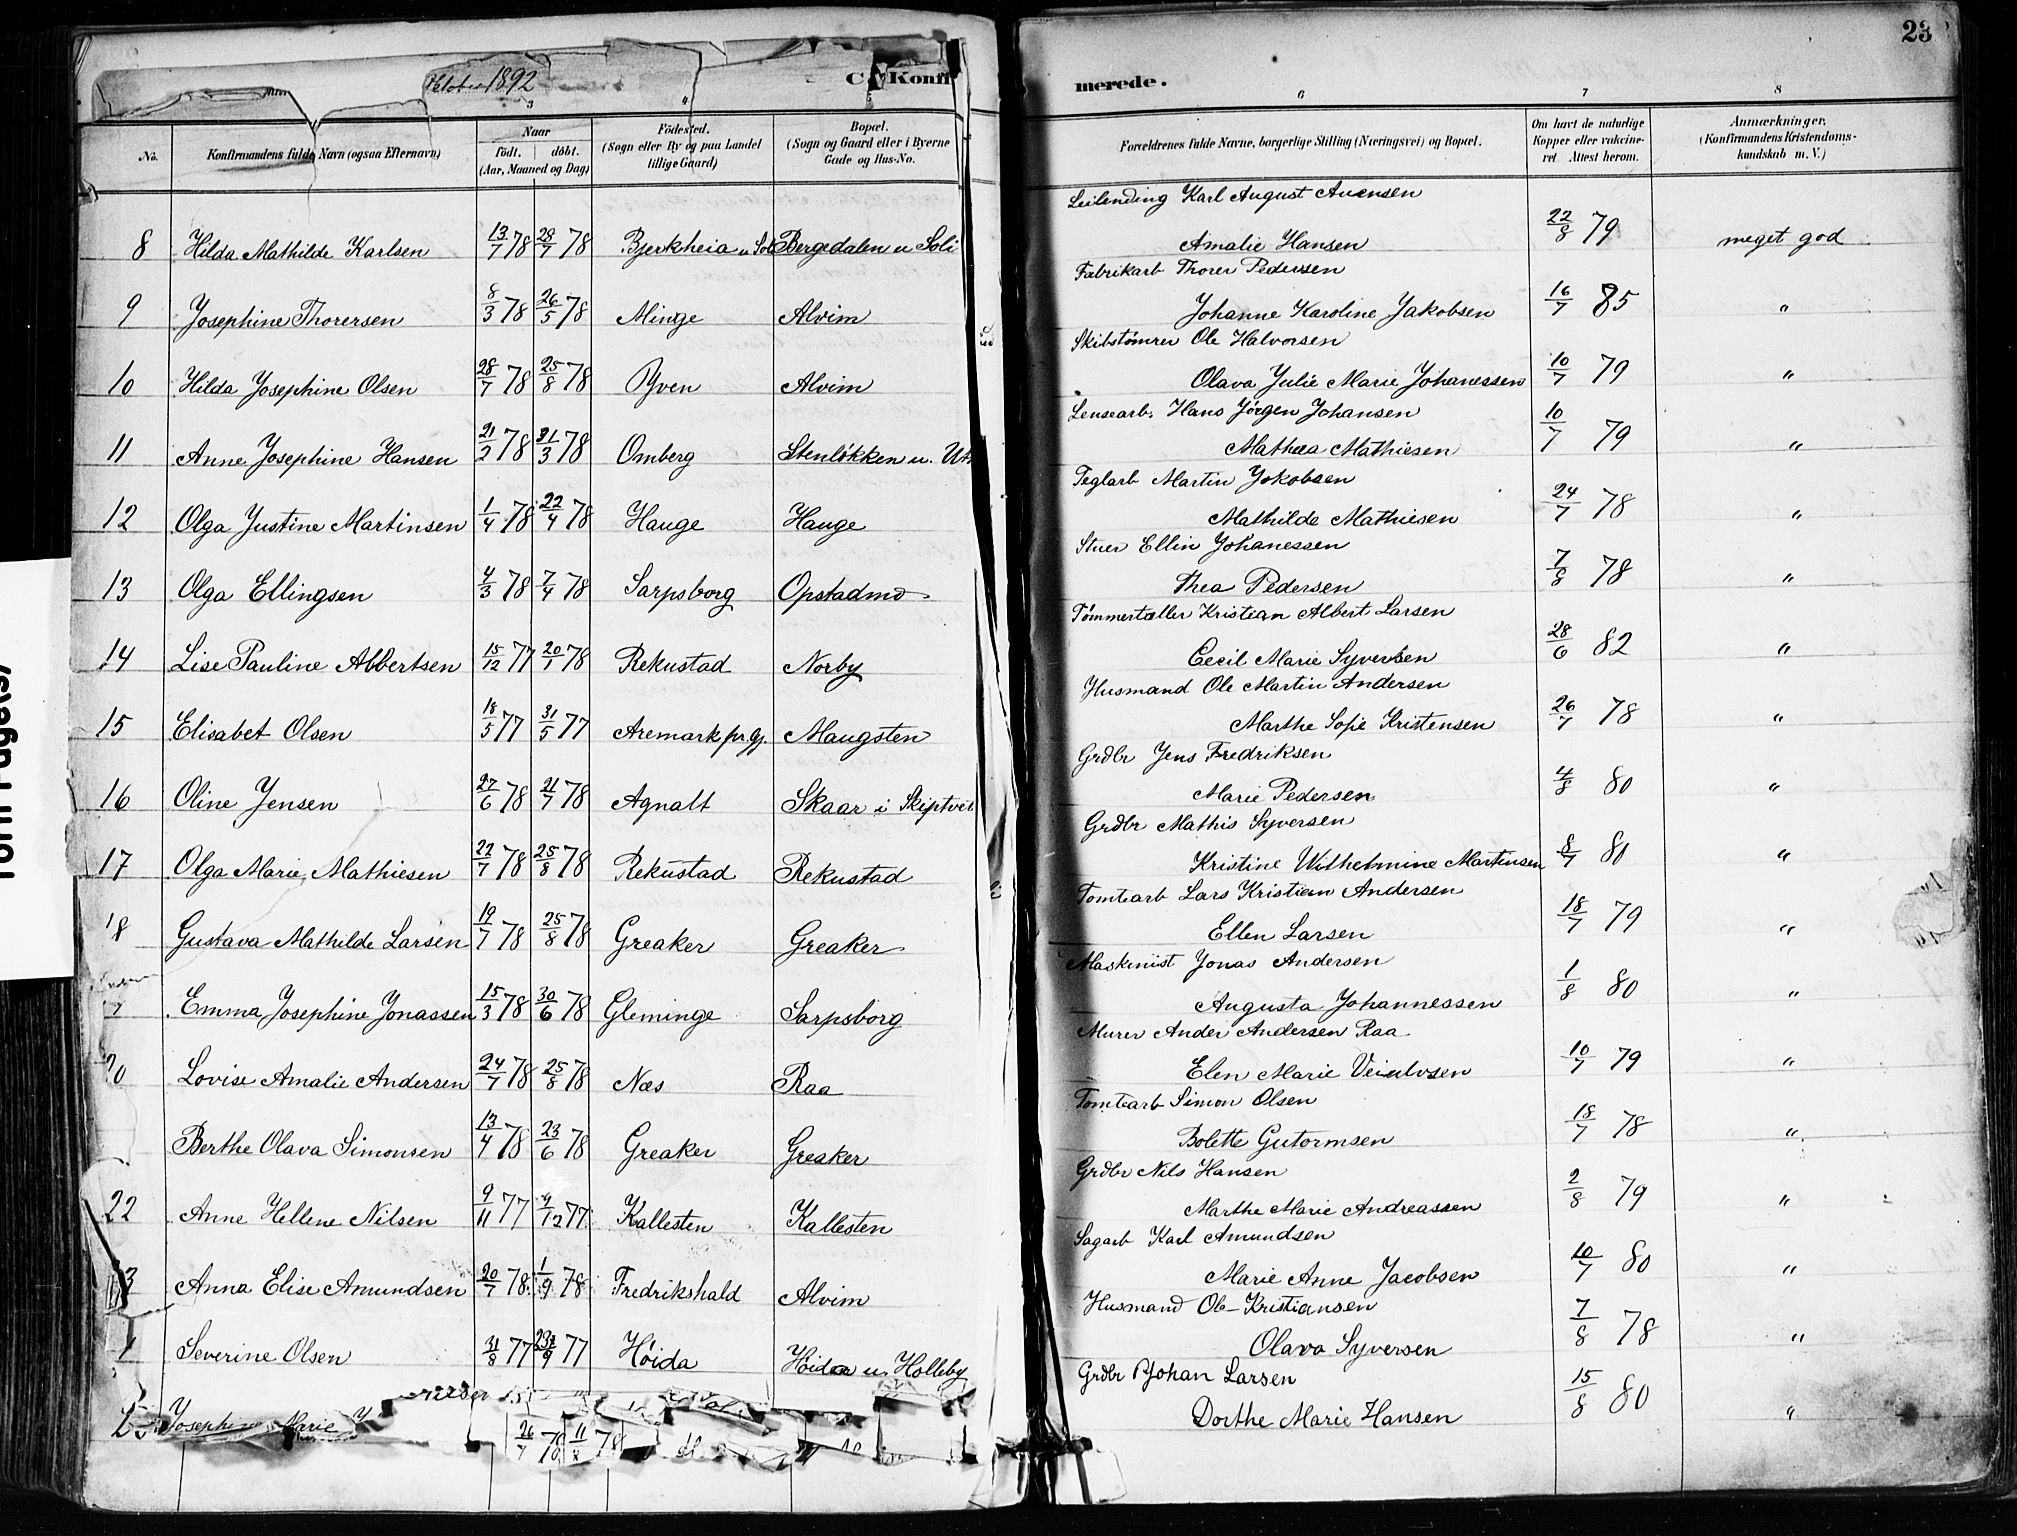 23
Oktober 1892
C. Konfirmerede.
3 4 5 6 7 8
No.
Konfirmandens fulde Navn (ogsaa Efternavn)
Naar
født. døbt.
(Aar, Maaned og Dag)
Fødested.
(Sogn eller By og paa Landet tillige Gaard)
Bopæl.
(Sogn og Gaard eller i Byerne Gade og Hus-No.
Forældrenes fulde Navne, borgerlige Stilling (Næringsvei) og Bopæl.
Om havt de naturlige Kopper eller vaccineret Attest herom.
Anmærkninger,
(Konfirmandens Kristendomskundskab m. V.)
Leilending Karl August Avensen
8 Hilda Mathilde Karlsen 13/7 78 28/7 78 Bjerkheia u Soli Bergedalen u Soli Amalie Hansen 22/8 79 meget god
Fabrikarb Thorer Pedersen
9 Josephine Thorersen 8/3 78 26/5 78 Minge Alvim Johanne Karoline Jakobsen 16/7 85 "
Skibstømrer Ole Halvorsen
10 Hilda Josephine Olsen 28/7 78 25/8 78 Yven Alvim Olava Julie Marie Johanessen 10/7 79 "
Lensearb. Hans Jørgen Johansen
11 Anne Josephine Hansen 21/2 78 31/3 78 Omberg Stenløkken u. Mathea Mathiesen 10/7 79 "
Teglarb Martin Jokobsen
12 Olga Justine Martinsen 1/4 78 22/4 78 Hauge Hauge Mathilde Mathiesen 24/7 78 "
Stuer Ellin Johanessen
13 Olga Ellingsen 4/3 78 7/4 78 Sarpsborg Opstadmo Thea Pedersen 7/8 78 "
Tømmertæller Kristian Albert Larsen
14 Lise Pauline Albertsen 15/12 77 20/1 78 Rekustad Norby Cecil Marie Syversen 28/6 82 "
Husmand Ole Martin Andersen
15 Elisabet Olsen 18/5 77 31/5 77 Aremark pr.gj. Maugsten Marthe Sofie Kristensen 26/7 78 "
Grdbr Jens Fredriksen
16 Oline Jensen 27/6 78 21/7 78 Agnalt Skaar i Skiptvet Marie Pedersen 4/8 80 "
Grdbr Mathis Syversen
17 Olga Marie Mathiesen 22/7 78 25/8 78 Rekustad Rekustad Kristine Wilhelmine Martinsen 8/7 80 "
Tomtearb Lars Kristian Andersen
18 Gustava Mathilde Larsen 19/7 78 25/8 78 Greaker Greaker Ellen Larsen 18/7 79 "
Maskinist Jonas Andersen
Emma Josephine Jonassen 15/3 78 30/6 78 Gleminge Sarpsborg Augusta Johannessen 1/8 80 "
Murer Ander Andersen Raa
20 Lovise Amalie Andersen 24/7 78 25/8 78 Næs Raa Elen Marie 10/7 79 "
Tomtearb Simon Olsen
Berthe Olava Simonsen 13/4 78 23/6 78 Greaker Greaker Bolette Gutormsen 18/7 78 "
Grdbr Nils Hansen
22 Anne Hellene Nilsen 9/11 77 9/12 77 Kallesten Kallesten Marthe Marie Andreassen 2/8 79 "
Sagarb Karl Amundsen
3 Anna Elise Amundsen 20/7 78 1/9 78 Fredrikshald Alvim Marie Anne Jacobsen 10/7 80 "
Husmand Ole Kristiansen
Severine Olsen 31/8 77 23/9 77 Høida Høida u. Holleby Olava Syversen 7/8 78 "
Grdbr Johan Larsen
Josephine Marie 26/7 78 11/ 78 Dorthe Marie Hansen 15/8 80 "